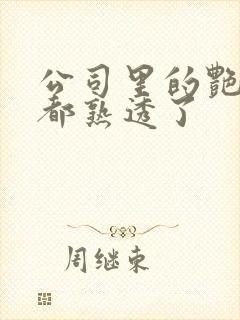 公司里的艷
都熟透了
周继东